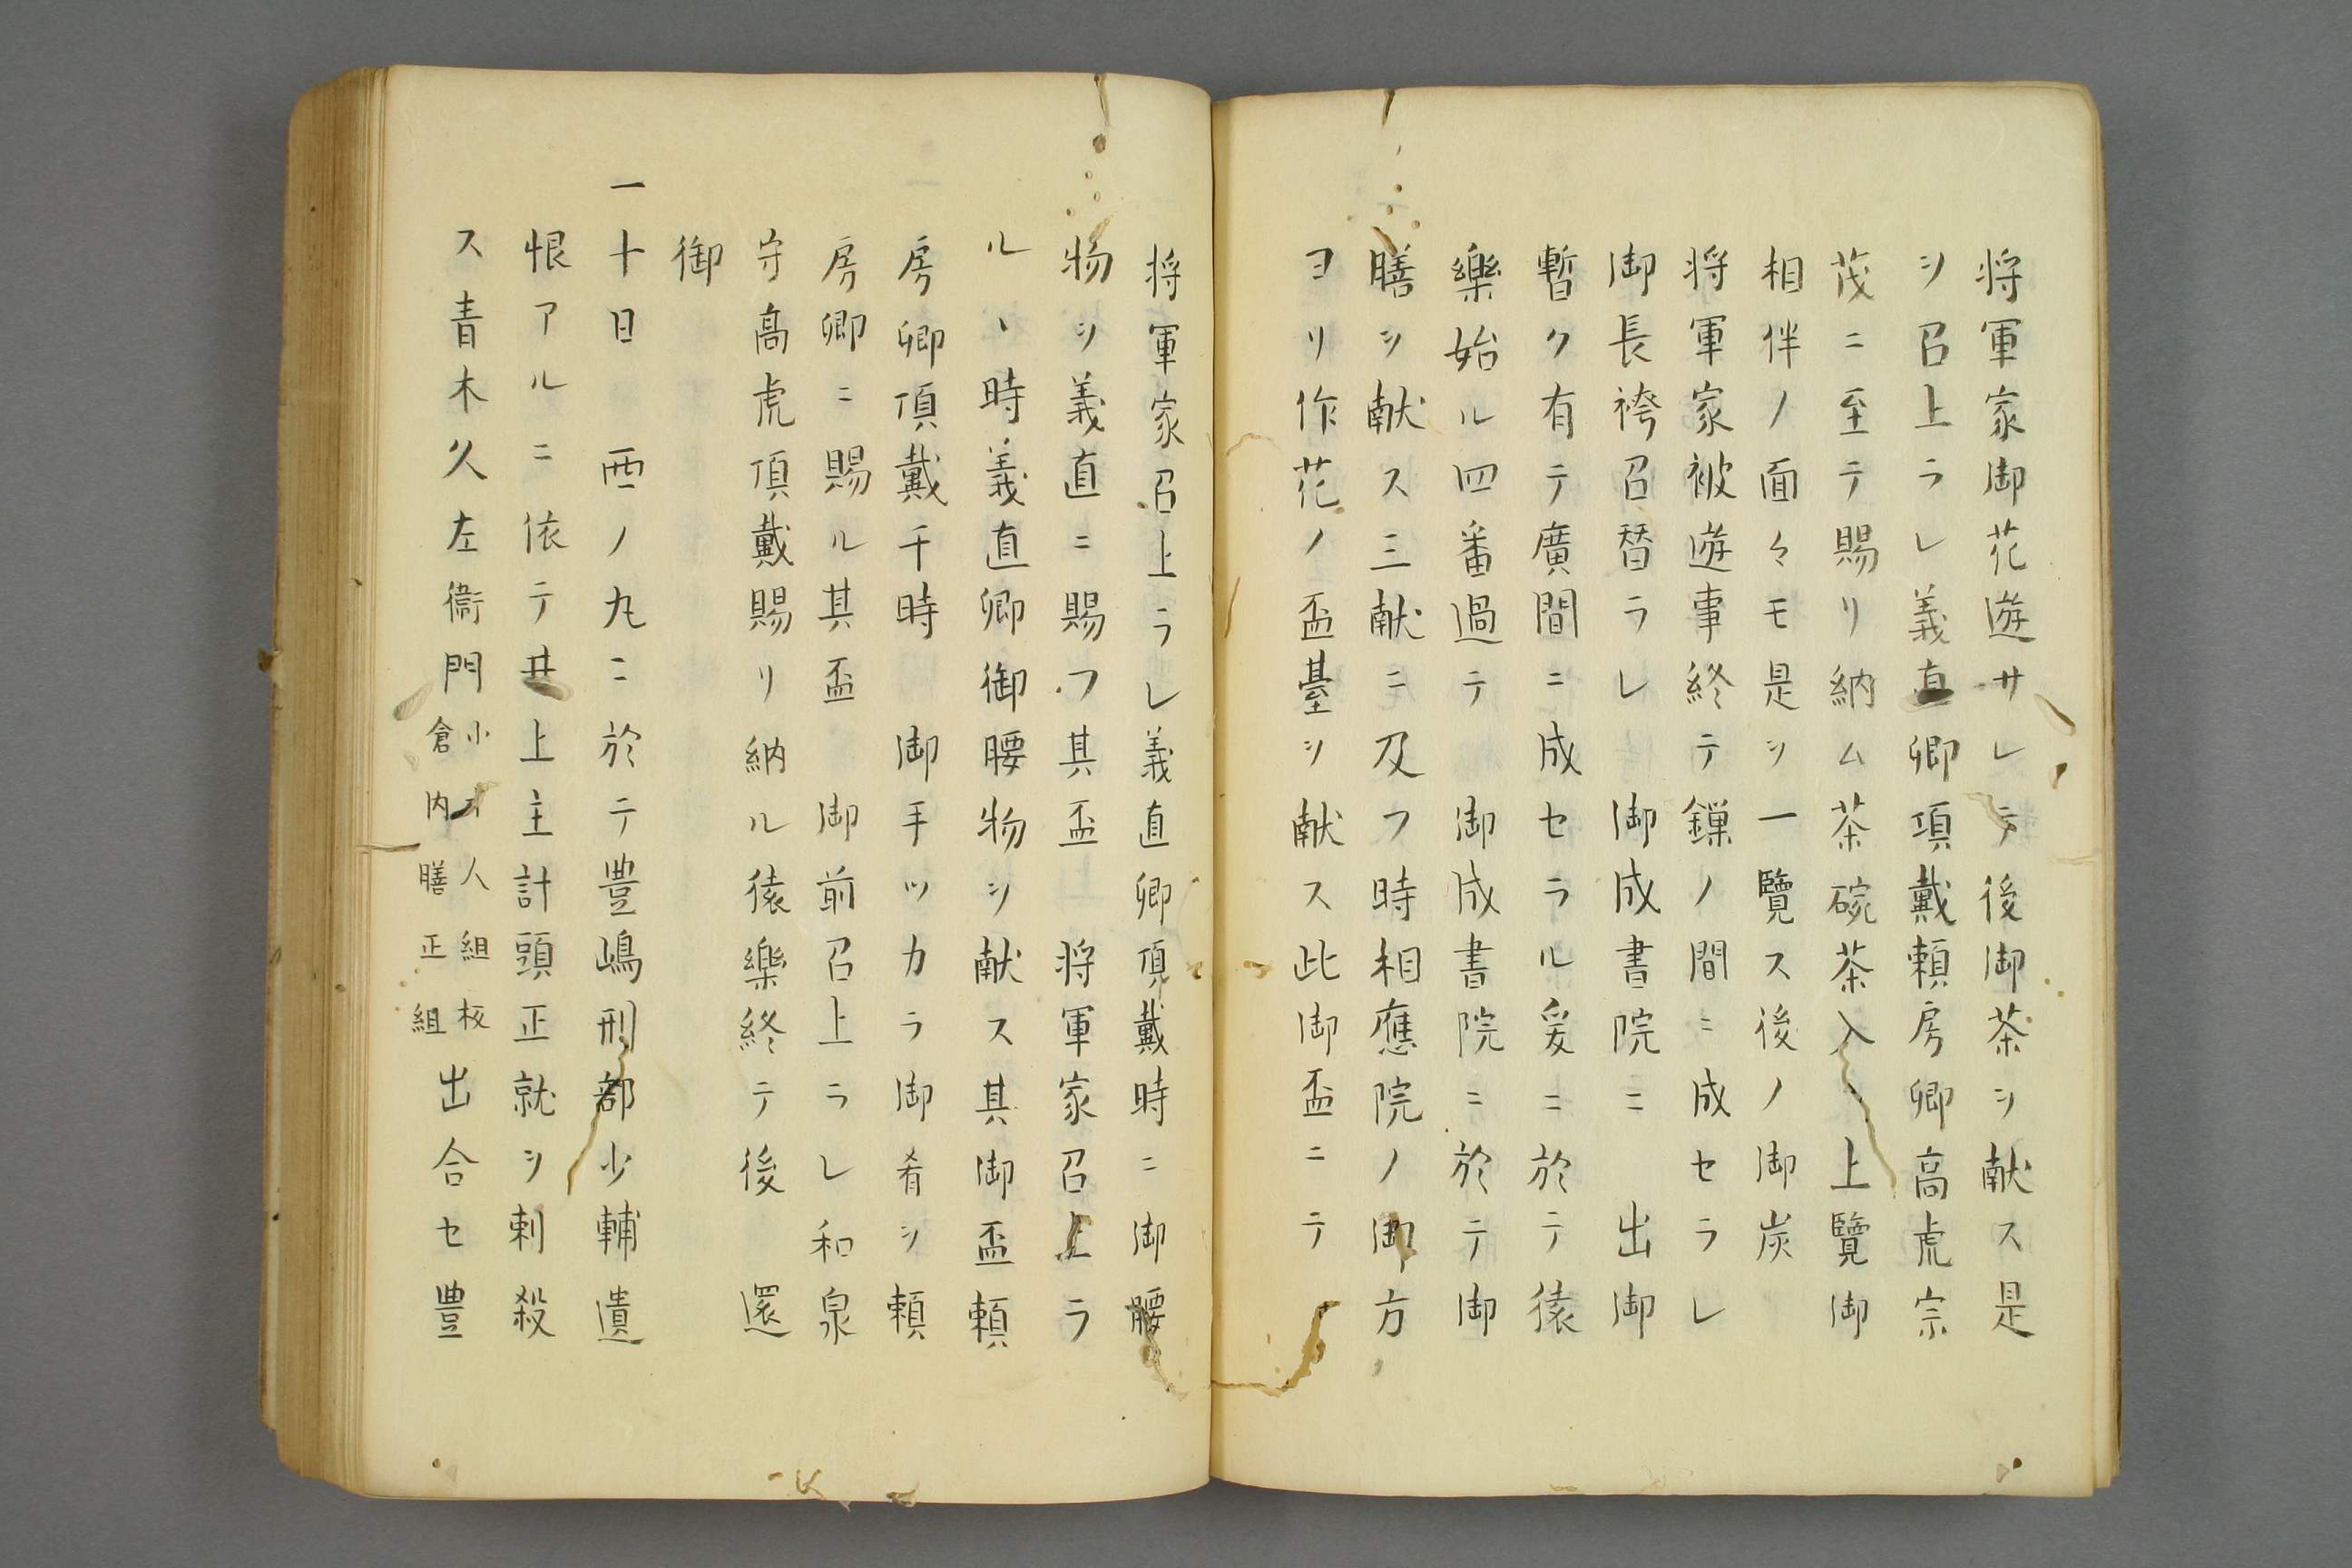 将軍家御花遊サレテ後御茶シ献ス是
シ召上ラレ義直卿頂戴頼房卿高虎宗
茂ニ至テ賜リ納ム茶碗茶入ヽ上覽御
相伴ノ面々モ是シ一覽ス後ノ御炭
将軍家被遊事終テ鏁ノ間ニ成セラレ
御長袴召替ラレ　御成書院ニ　出御
暫ク有テ廣間ニ成セラル爰ニ於テ猿
樂始ル四番過テ　御成書院ニ於テ御
膳シ献ス三献ニ及フ時相應院ノ御方
ヨリ作花ノ盃臺シ献ス此御盃ニテ
将軍家召上ラレ義直卿頂戴時ニ御腰
物シ義直ニ賜フ其盃　将軍家召上ラ
ルヽ時義直卿御腰物シ献ス其御盃頼
房卿頂戴千時　御手ツカラ御肴シ頼
房卿ニ賜ル其盃　御前召上ラレ和泉
守高虎頂戴賜リ納ル猿樂終テ後　還
御
一十日　西ノ丸ニ於テ豊嶋刑部少輔遺
恨アルニ依テ井上主計頭正就シ刺殺
ス青木久左衞門小十人組校倉内膳正組出合セ豊